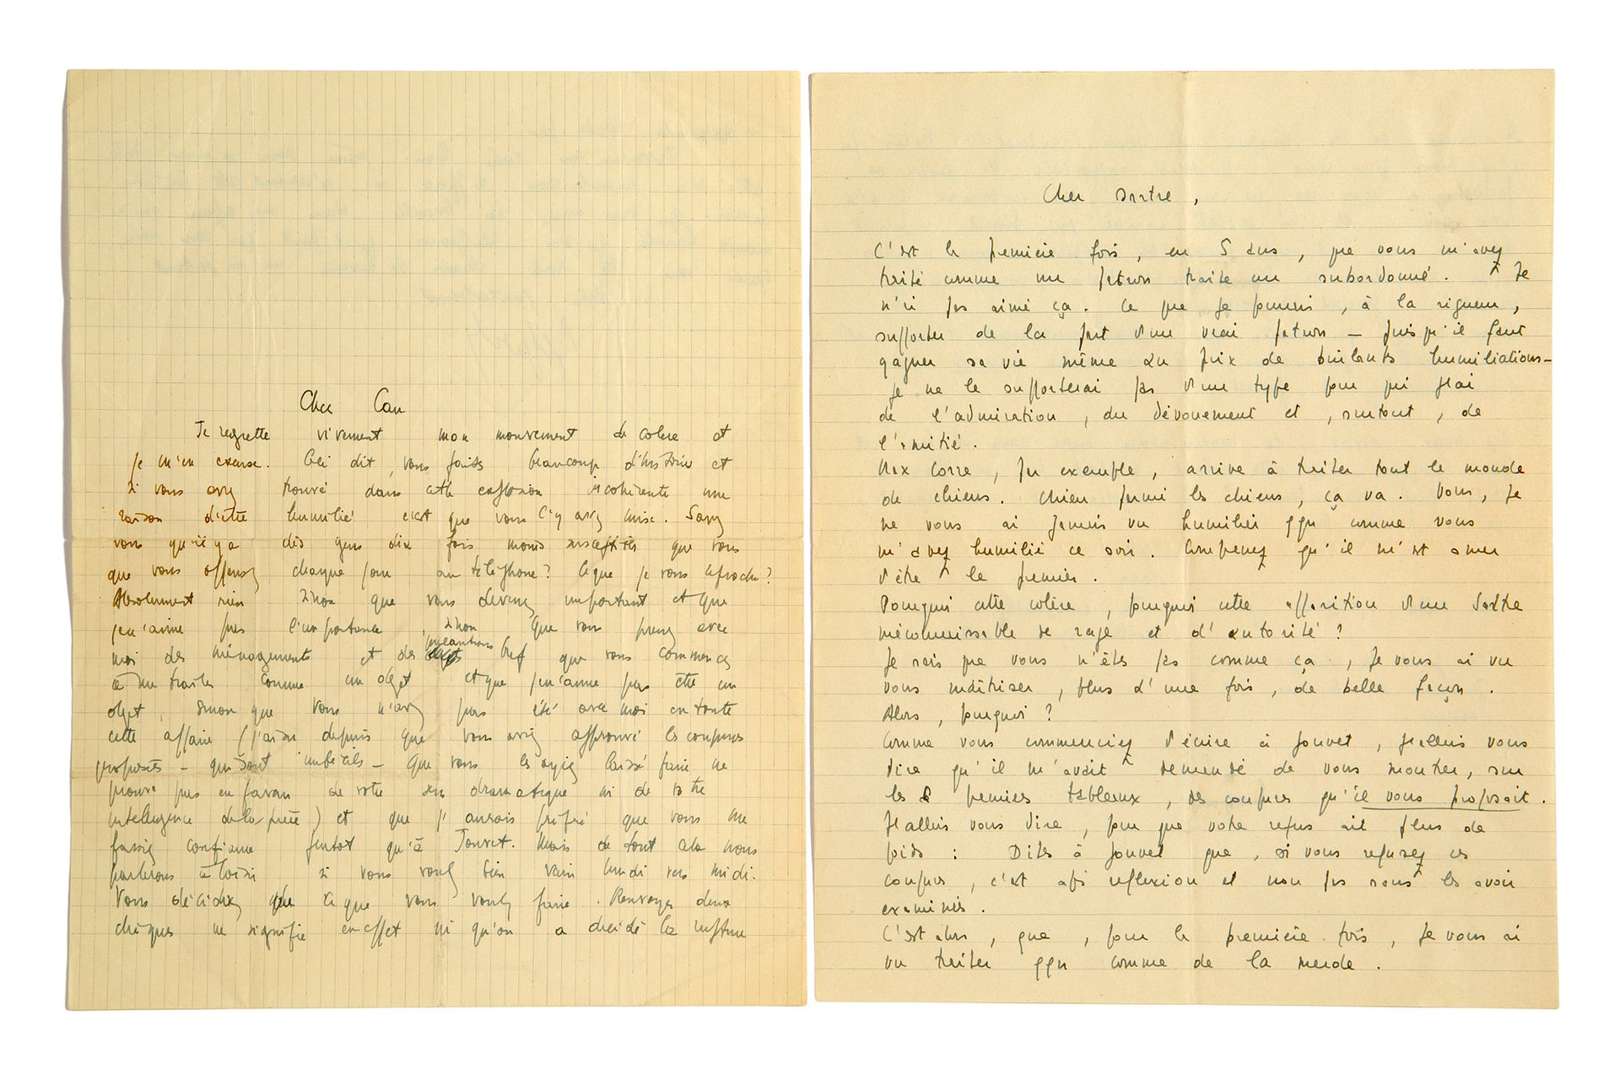 Cher Cau
Je regrette vivement mon mouvement de colère et
je m'en excuse. Ceci dit, vous faites beaucoup d'histoires et
si vous avez trouvé dans cette explosion incohérente une
raison d'être humilié c'est que vous l'y avez mise. Savez
vous qu'il y a des gens dix fois moins susceptibles que vous
que vous offensez chaque jour au téléphone? Ce que je vous reproche?
Absolument rien sinon que vous devenez important et que
je n'aime pas l'importance, sinon que vous prenez avec
moi des ménagements et des précautions bref que vous commencez
à me traiter comme un objet et que je n'aime pas être un
objet, sinon que vous n'avez pas été avec moi en toute
cette affaire (j'ai su depuis que vous aviez approuvé les coupures
proposées - qui sont imbéciles - Que vous les ayiez laissé faire ne
prouve pas en faveur de votre sens dramatique ni de votre
intelligence de la pièce) et que j'aurais préféré que vous me
fassiez confiance plutôt qu'à Jouvet. Mais de tout cela nous
parlerons à loisir si vous voulez bien venir lundi vers midi.
Vous déciderez de ce que vous voulez faire. Renvoyer deux
chèques ne signifie en effet ni qu'on a décidé la rupture
Cher Sartre,
C'est la première fois, en 5 ans, que vous m'avez
traité comme un patron traite un subordonné. Je
n'ai pas aimé ça. Ce que je pourrais, à la rigueur,
supporter de la part d'un vrai patron – puisqu'il faut
gagner sa vie même au prix de brûlants humiliations –
je ne le supporterai pas d'un type pour qui j'ai
de l'admiration, du dévouement et, surtout, de
l'amitié.
Alex Corre, par exemple, arrive à traiter tout le monde
de chiens. Chien parmi les chiens, ça va. Vous, je
ne vous ai jamais vu humilier qqu comme vous
m'avez humilié ce soir. Comprenez qu'il m'est amer
d'être le premier.
Pourquoi cette colère, pourquoi cette apparition d'un Sartre
méconnaissable de rage et d'autorité?
Je sais que vous n'êtes pas comme ça, je vous ai vu
vous maîtriser, plus d'une fois, de belle façon.
Alors, pourquoi?
Comme vous commenciez d'écrire à Jouvet, j'allais vous
dire qu'il m'avait demandé de vous montrer, sur
les premiers tableaux, des coupures qu'il vous proposait.
J'allais vous dire, pour que votre refus ait plus de
poids : Dites à Jouvet que, si vous refusez ces
coupures, c'est après réflexion et non pas sans les avoir
examinés.
C'est alors, que, pour la première fois, je vous ai
vu traiter qqu comme de la merde.